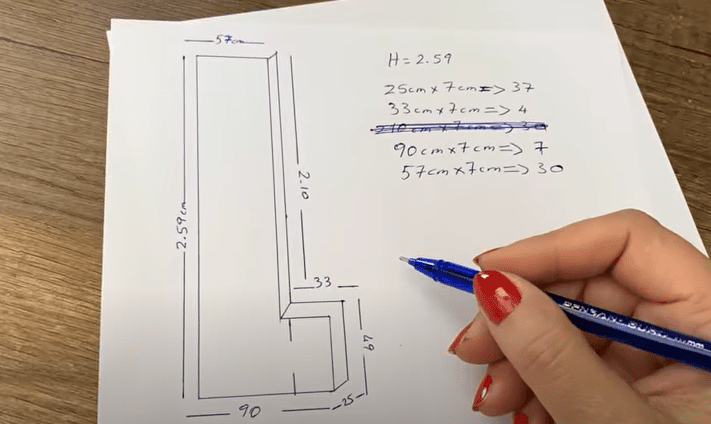 57cm
H = 2.59
25cm x 7cm => 37
33cm x 7cm => 4
210 cm x 7cm => 30
90cm x 7cm => 7
57cm x 7cm => 30
2.59cm
2.10
33
49
25
90